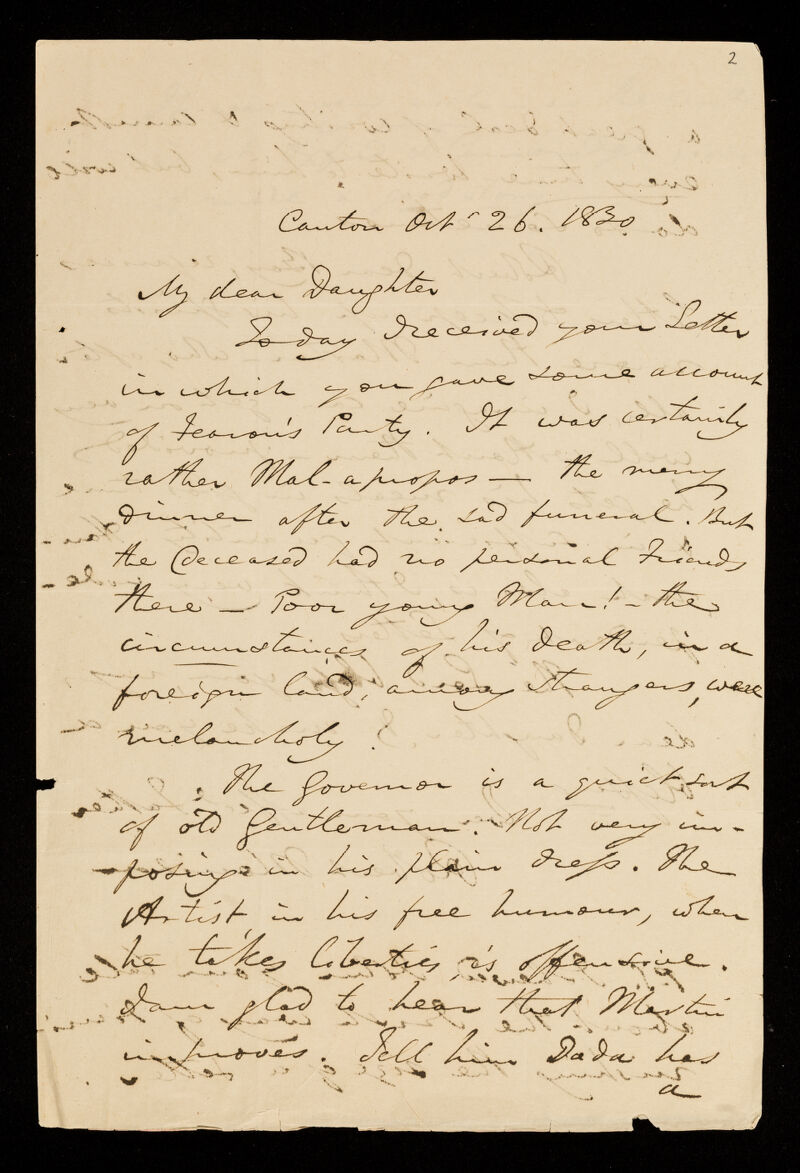 2
Canton Octr 26. 1830
My dear Daughter
To day I received your Letter
in which you gave some account
of Fearon's Party. It was certainly
rather Mal-apropos — the merry
dinner after the sad funeral. But
the deceased had no personal Friends
there — Poor young Man! — the
circumstances of his death, in a
foreign land, among strangers, were
melancholy.
The Governor is a quiet sort
of old Gentleman. Not very im-
posing in his plain dress. The
Artist in his free humour, when
he takes liberties, is offensive.
I am glad to hear that Martin
improves. Tell him Dada has
a